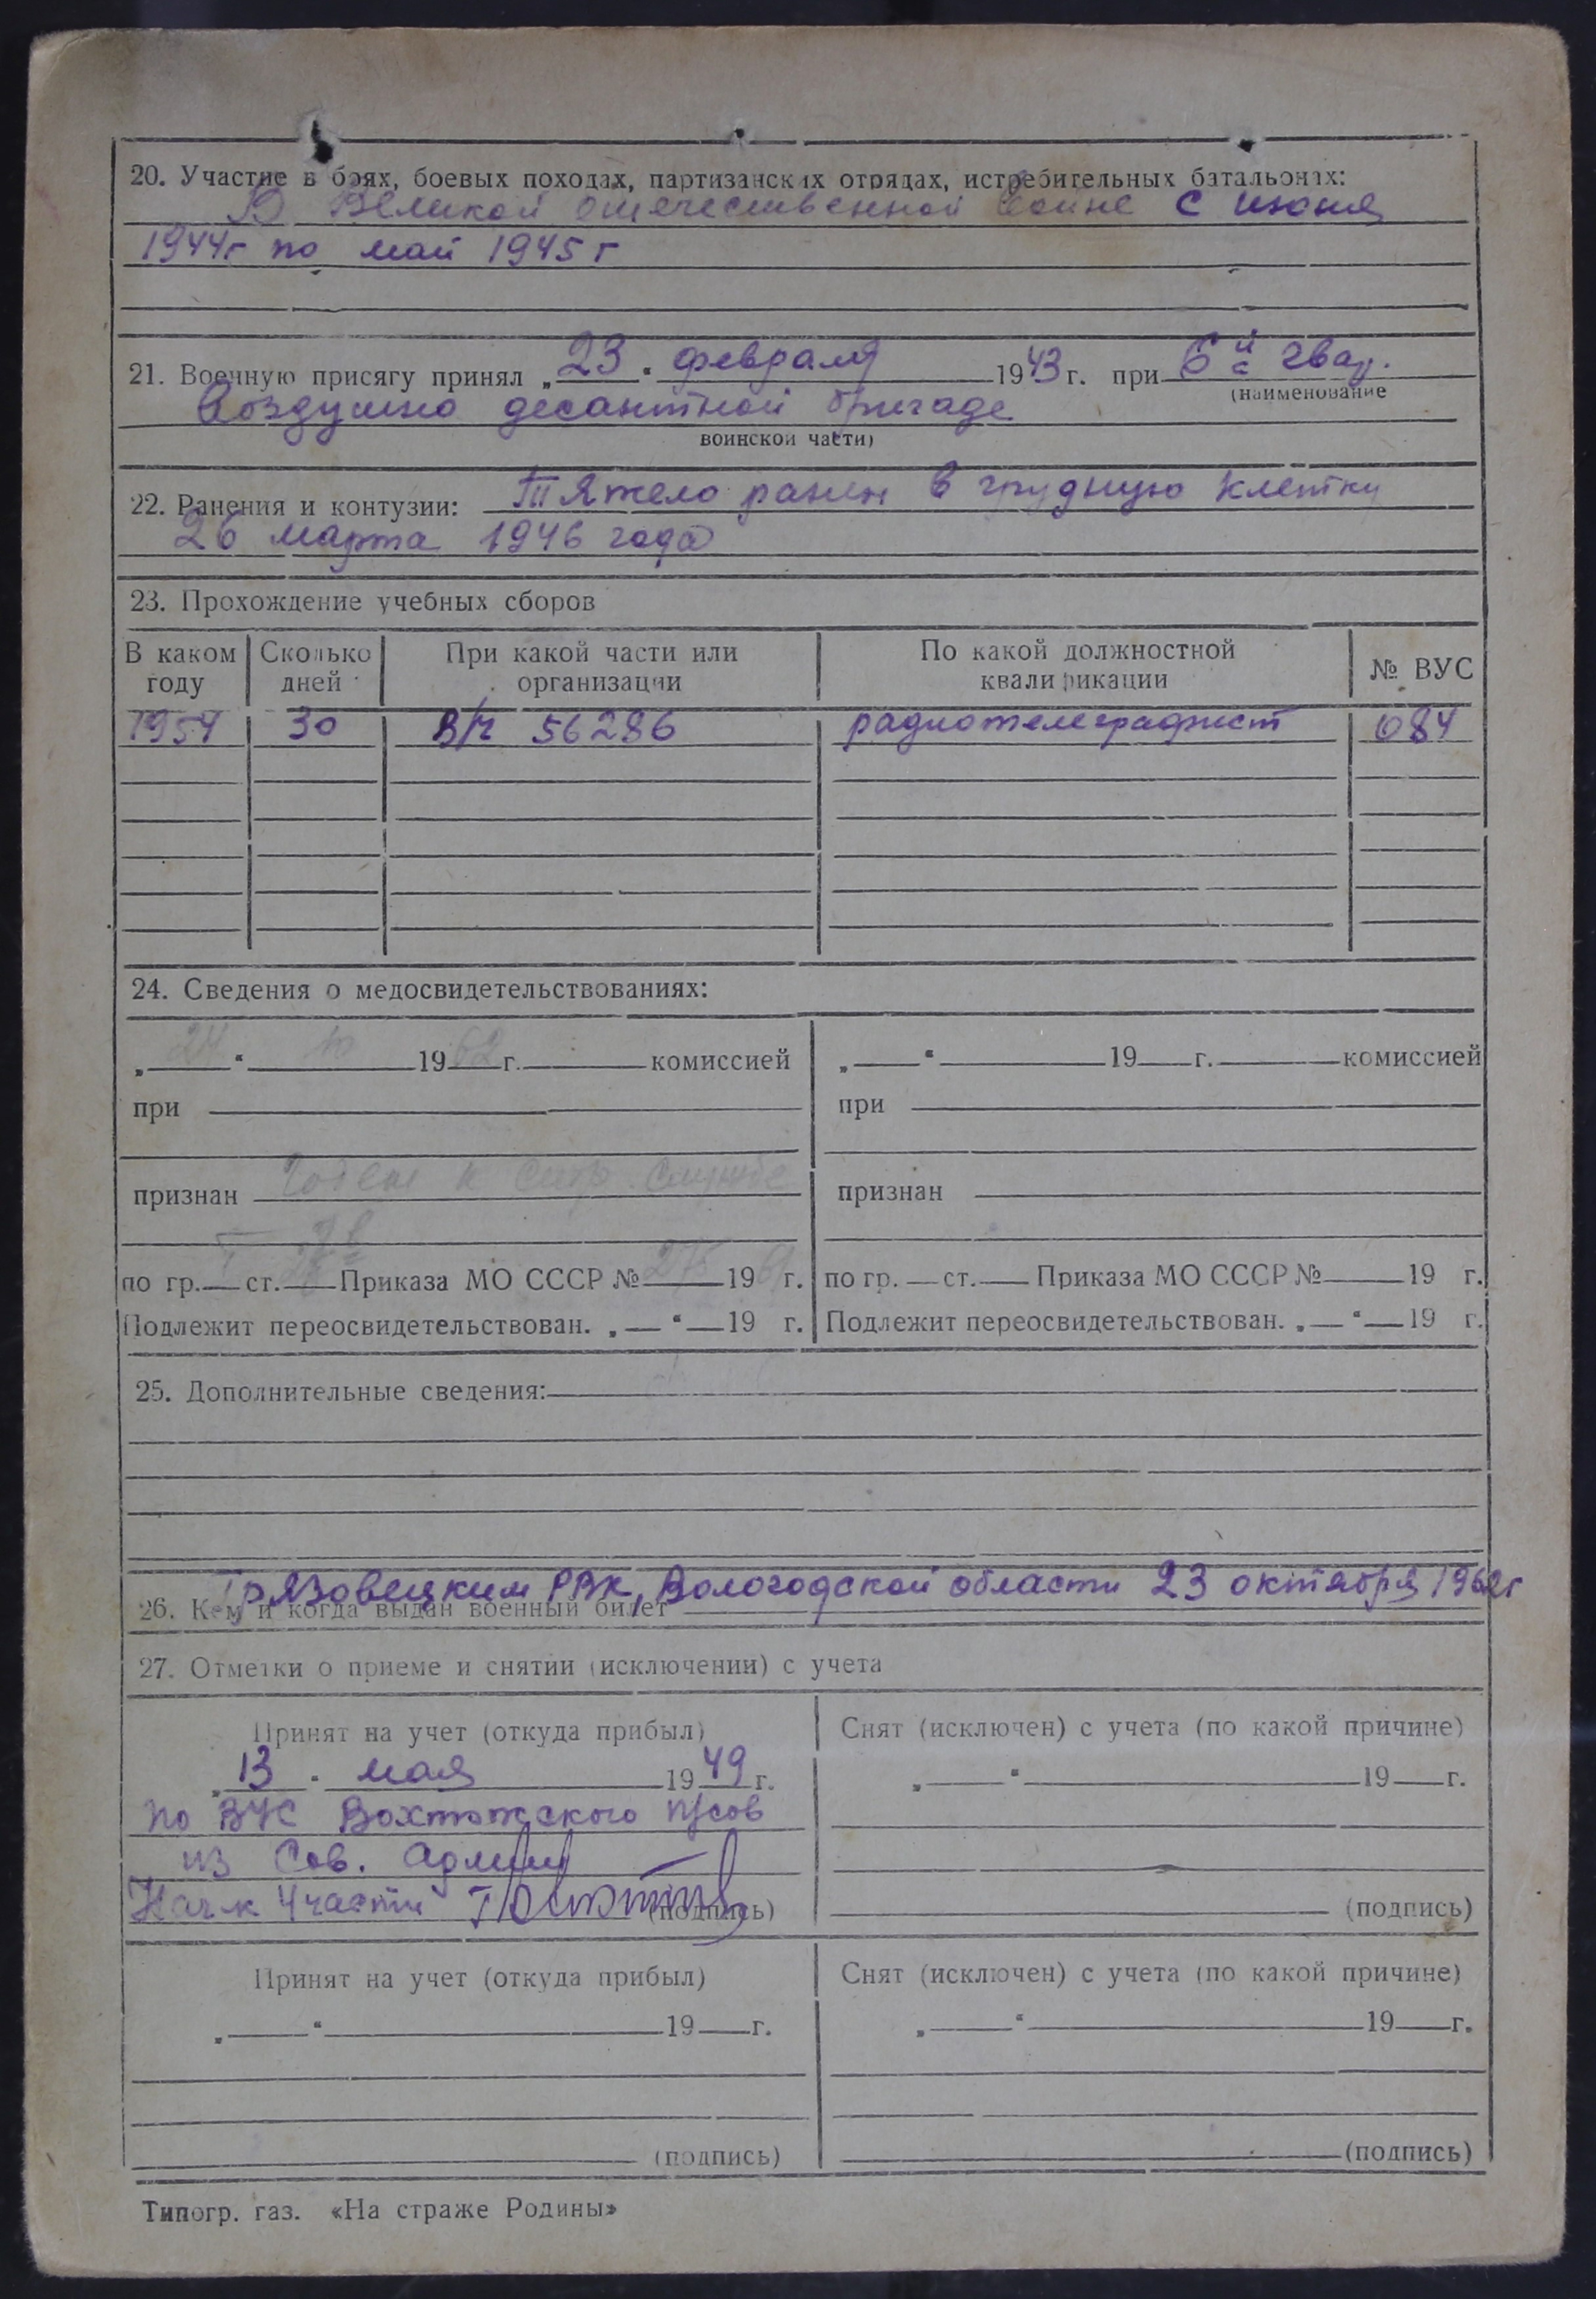 20. Участие в боях, боевых походах, партизанских отрядах, истребительных батальонах:
В Великой отечественной войне с июня
1944г по май 1945 г
21. Военную присягу принял „23" февраля 1943 г. при 6й гвар.
(наименование
Воздушно десантной бригаде
воинской части)
22. Ранения и контузии: Тяжело ранен в грудную клетку
26 марта 1946 года
23. Прохождение учебных сборов
В каком году Сколько дней При какой части или организации По какой должностной квалификации № ВУС
1954 30 В/ч 56286 радиотелеграфист 084
24. Сведения о медосвидетельствованиях:
„24" 10 1962 г. комиссией
при
признан годен к стр. службе
по гр. I ст. Приказа МО СССР № 275 1961 г.
Подлежит переосвидетельствован. „ " 19 г.
„ " 19 г. комиссией
при
признан
по гр. ст. Приказа МО СССР № 19 г.
Подлежит переосвидетельствован. „ " 19 г.
25. Дополнительные сведения:
Грязовецким РВК, Вологодской области 23 октября 1962г
26. Кем и когда выдан военный билет
27. Отметки о приеме и снятии (исключении) с учета
Принят на учет (откуда прибыл)
„13" мая 1949 г.
по ВУС Вохтожского п/сов
из Сов. Армии
Нач-к 4 части
(подпись)
Снят (исключен) с учета (по какой причине)
„ " 19 г.
(подпись)
Принят на учет (откуда прибыл)
„ " 19 г.
(подпись)
Снят (исключен) с учета (по какой причине)
„ " 19 г.
(подпись)
Типогр. газ. «На страже Родины»